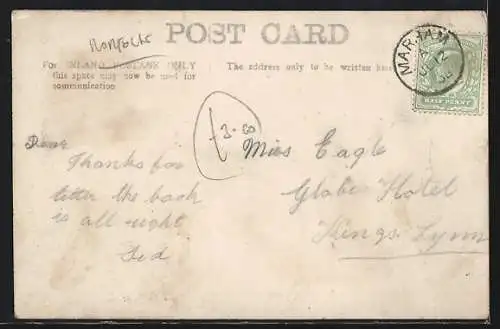 Norfolk
POST CARD
For INLAND POSTAGE ONLY
this space may now be used for
communication
The address only to be written here
MARHAM
HALF PENNY
£3-50
Dear
Thanks for
letter the book
is all right
Sid
Miss Eagle
Globe Hotel
Kings Lynn